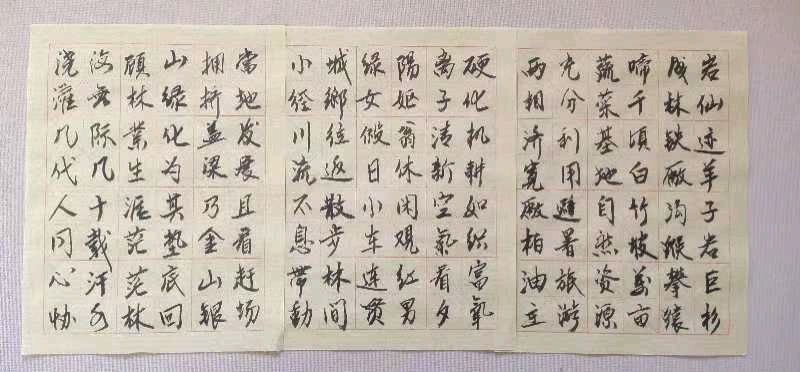 岩仙迹羊子岩巨杉
成林铁厰沟猴攀猿
啼千頃白竹坡萬亩
蔬菜基地自然资源
充分利用避暑旅游
两相济宽厰柏油立
硬化机耕如织富氧
离子清新空氣看夕
陽姬翁休闲观红男
绿女假日小车连贯
城鄉往返散步林间
小径川流不息帶動
當地发展且看赶场
拥挤盖梁乃金山银
山绿化为其垫底回
顾林業生涯茫茫林
海无际几十载汗水
浇灌几代人同心协